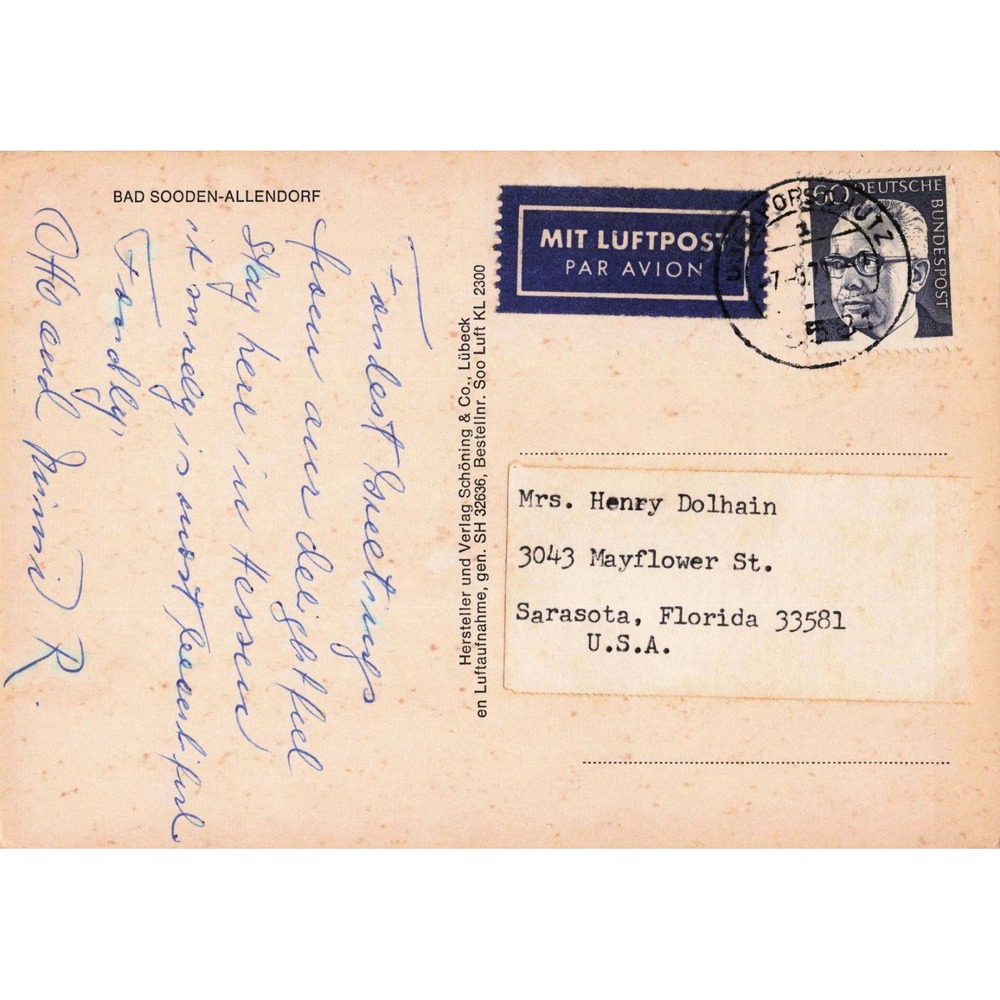 BAD SOODEN-ALLENDORF
Fondest Greetings
from our delightful
Stay here in Hessen
it surely is most beautiful
Fondly,
Otto and Mimi R.
Hersteller und Verlag Schöning & Co., Lübeck
en Luftaufnahme, gen. SH 32636, Bestellnr. Soo Luft KL 2300
MIT LUFTPOST
PAR AVION
60 DEUTSCHE
BUNDESPOST
Mrs. Henry Dolhain
3043 Mayflower St.
Sarasota, Florida 33581
U.S.A.